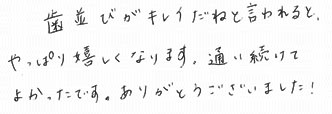 歯並びがキレイだねと言われると、
やっぱり嬉しくなります。通い続けて
よかったです。ありがとうございました!